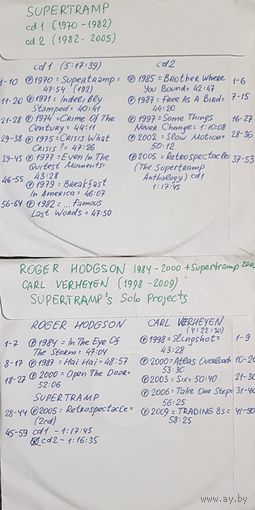 SUPERTRAMP
cd 1 (1970-1982)
cd 2 (1982-2005)
cd1 (5:17:39)
1-10 ℗ 1970 = Supertramp = 47:54 (192)
11-20 ℗ 1971 = Indel.bly Stamped = 40:41
21-28 ℗ 1974 = Crime Of The Century = 44:11
29-38 ℗ 1975 = Crisis What Crisis? = 47:26
39-45 ℗ 1977 = Even In The Quitest Moments: 43:28
46-55 ℗ 1979 = Breakfast In America = 46:07
56-64 ℗ 1982 = ... Famous Last Words = 47:50
cd2
℗ 1985 = Brother Where You Bound = 42:47 1-6
℗ 1987 = Free As A Bird = 44:20 7-15
℗ 1997 = Some Things Never Change = 1:10:08 16-27
℗ 2002 = Slow Motion = 50:12 28-36
℗ 2005 = Retrospectacle (The Supertramp Anthology) cd1 1:17:45 37-53
ROGER HODGSON 1984-2000 + Supertramp
CARL VERHEYEN (1998-2009)
SUPERTRAMP's Solo Projects
ROGER HODGSON
1-7 ℗ 1984 = In The Eye Of The Storm = 47:04
8-17 ℗ 1987 = Hai Hai = 48:57
18-27 ℗ 2000 = Open The Door = 52:06
SUPERTRAMP
28-44 ℗ 2005 = Retrospectacle = (2cd)
cd1 - 1:17:45
45-59 cd2 - 1:16:35
CARL VERHEYEN
(4:22:30)
℗ 1998 = Slingshot = 43:28 1-9
℗ 2000 = Atlas Overload = 53:30
℗ 2003 = Six = 50:40 21-30
℗ 2006 = Take One Step = 56:25
℗ 2009 = TRADING 8s = 58:25 41-50
ay.by